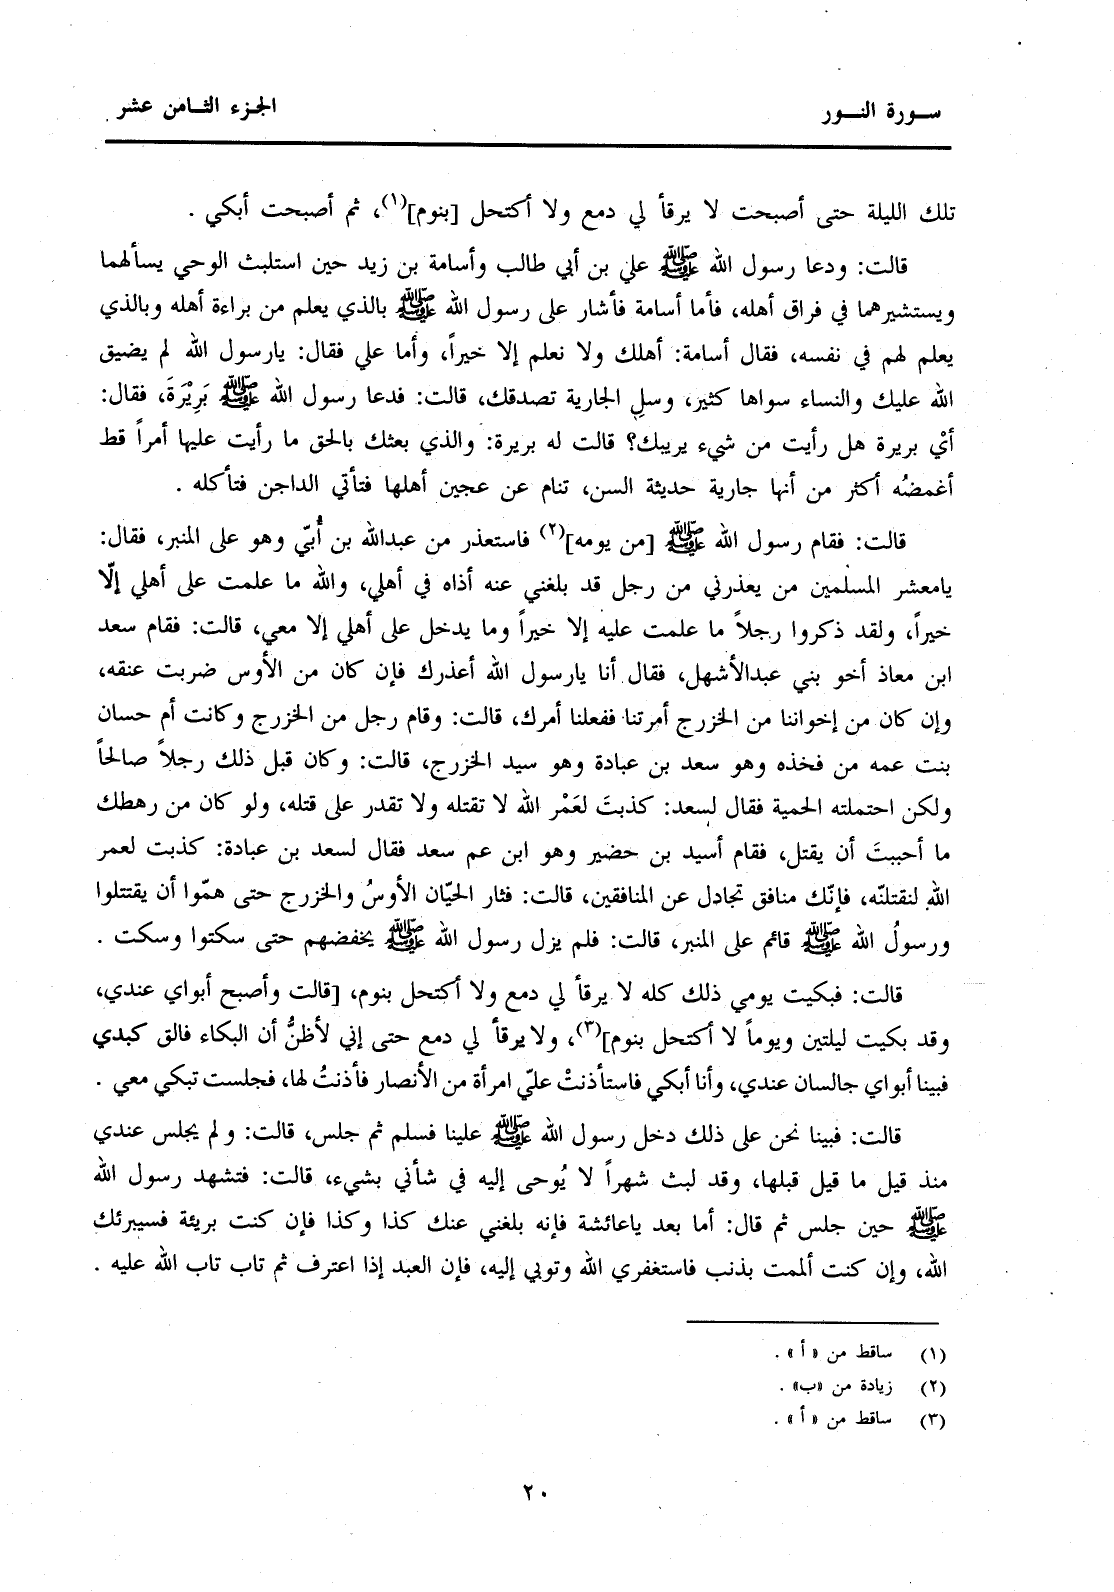 سورة النور
الجزء الثامن عشر
تلك الليلة حتى أصبحت لا يرقأ لي دمع ولا أكتحل [بنوم](١)، ثم أصبحت أبكي .
قالت: ودعا رسول الله ﷺ علي بن أبي طالب وأسامة بن زيد حين استلبث الوحي يسألهما
ويستشيرهما في فراق أهله، فأما أسامة فأشار على رسول الله ﷺ بالذي يعلم من براءة أهله وبالذي
يعلم لهم في نفسه، فقال أسامة: أهلك ولا نعلم إلا خيراً، وأما علي فقال: يارسول الله لم يضيق
الله عليك والنساء سواها كثير، وسلِ الجارية تصدقك، قالت: فدعا رسول الله ﷺ بَرِيْرَةَ، فقال:
أيْ بريرة هل رأيت من شيء يريبك؟ قالت له بريرة: والذي بعثك بالحق ما رأيت عليها أمراً قط
أغمضُه أكثر من أنها جارية حديثة السن، تنام عن عجين أهلها فتأتي الداجن فتأكله .
قالت: فقام رسول الله ﷺ [من يومه](٢) فاستعذر من عبدالله بن أُبيّ وهو على المنبر، فقال:
يامعشر المسلمين من يعذرني من رجل قد بلغني عنه أذاه في أهلي، والله ما علمت على أهلي إلّا
خيراً، ولقد ذكروا رجلاً ما علمت عليه إلا خيراً وما يدخل على أهلي إلا معي، قالت: فقام سعد
ابن معاذ أخو بني عبدالأشهل، فقال أنا يارسول الله أعذرك فإن كان من الأوس ضربت عنقه،
وإن كان من إخواننا من الخزرج أمرتنا ففعلنا أمرك، قالت: وقام رجل من الخزرج وكانت أم حسان
بنت عمه من فخذه وهو سعد بن عبادة وهو سيد الخزرج، قالت: وكان قبل ذلك رجلاً صالحاً
ولكن احتملته الحمية فقال لسعد: كذبتَ لعَمْر الله لا تقتله ولا تقدر على قتله، ولو كان من رهطك
ما أحببتَ أن يقتل، فقام أسيد بن حضير وهو ابن عم سعد فقال لسعد بن عبادة: كذبت لعمر
الله لنقتلنّه، فإنّك منافق تجادل عن المنافقين، قالت: فثار الحيّان الأوسُ والخزرج حتى همّوا أن يقتتلوا
ورسولُ الله ﷺ قائم على المنبر، قالت: فلم يزل رسول الله ﷺ يخفضهم حتى سكتوا وسكت .
قالت: فبكيت يومي ذلك كله لا يرقأ لي دمع ولا أكتحل بنوم، [قالت وأصبح أبواي عندي،
وقد بكيت ليلتين ويوماً لا أكتحل بنوم](٣)، ولا يرقأ لي دمع حتى إني لأظنُّ أن البكاء فالق كبدي
فبينا أبواي جالسان عندي، وأنا أبكي فاستأذنتْ عليّ امرأة من الأنصار فأذنتُ لها، فجلست تبكي معي .
قالت: فبينا نحن على ذلك دخل رسول الله ﷺ علينا فسلم ثم جلس، قالت: ولم يجلس عندي
منذ قيل ما قيل قبلها، وقد لبث شهراً لا يُوحى إليه في شأني بشيء، قالت: فتشهد رسول الله
ﷺ حين جلس ثم قال: أما بعد ياعائشة فإنه بلغني عنك كذا وكذا فإن كنت بريئة فسيبرئك
الله، وإن كنت ألممت بذنب فاستغفري الله وتوبي إليه، فإن العبد إذا اعترف ثم تاب تاب الله عليه .
(١) ساقط من « أ » .
(٢) زيادة من «ب» .
(٣) ساقط من « أ » .
٢٠